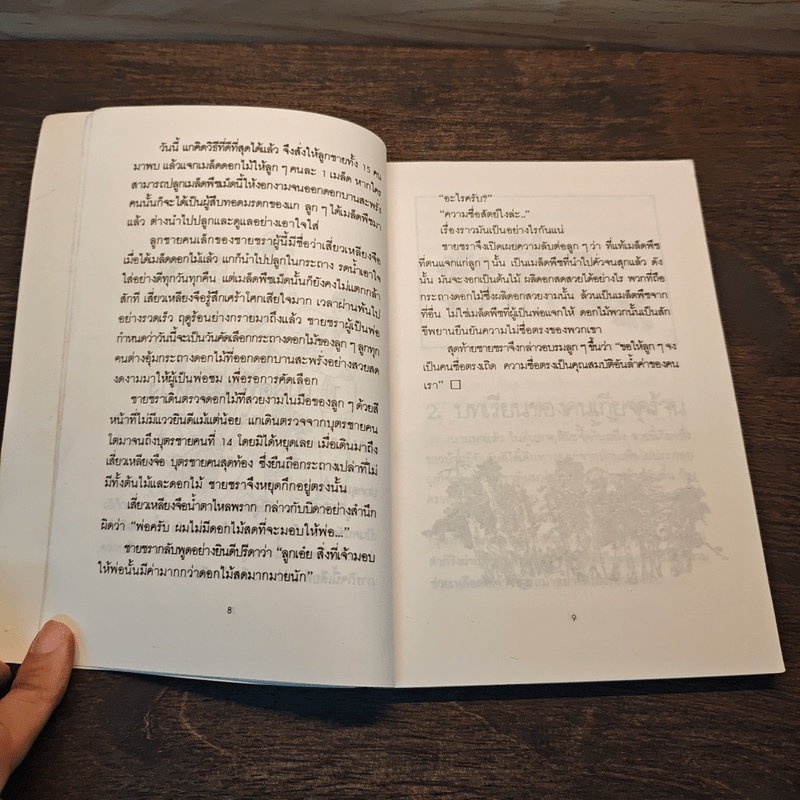 วันนี้ แกคิดวิธีที่ดีที่สุดได้แล้ว จึงสั่งให้ลูกชายทั้ง 15 คน
มาพบ แล้วแจกเมล็ดดอกไม้ให้ลูก ๆ คนละ 1 เมล็ด หากใคร
สามารถปลูกเมล็ดพืชเม็ดนี้ให้งอกงามจนออกดอกบานสะพรั่ง
คนนั้นก็จะได้เป็นผู้สืบทอดมรดกของแก ลูก ๆ ได้เมล็ดพืชมา
แล้ว ต่างนำไปปลูกและดูแลอย่างเอาใจใส่
ลูกชายคนเล็กของชายชราผู้นี้มีชื่อว่าเสี่ยวเหลียงจือ
เมื่อได้เมล็ดดอกไม้แล้ว แกก็นำไปปลูกในกระถาง รดน้ำเอาใจ
ใส่อย่างดีทุกวันทุกคืน แต่เมล็ดพืชเม็ดนั้นก็ยังคงไม่แตกกล้า
สักที เสี่ยวเหลียงจือรู้สึกเศร้าโศกเสียใจมาก เวลาผ่านพ้นไป
อย่างรวดเร็ว ฤดูร้อนย่างกรายมาถึงแล้ว ชายชราผู้เป็นพ่อ
กำหนดว่าวันนี้จะเป็นวันคัดเลือกกระถางดอกไม้ของลูก ๆ ลูกทุก
คนต่างอุ้มกระถางดอกไม้ที่ออกดอกบานสะพรั่งอย่างสวยสด
งดงามมาให้ผู้เป็นพ่อชม เพื่อรอการคัดเลือก
ชายชราเดินตรวจดอกไม้ที่สวยงามในมือของลูก ๆ ด้วยสี
หน้าที่ไม่มีแววยินดีแม้แต่น้อย แกเดินตรวจจากบุตรชายคน
โตมาจนถึงบุตรชายคนที่ 14 โดยมิได้หยุดเลย เมื่อเดินมาถึง
เสี่ยวเหลียงจือ บุตรชายคนสุดท้อง ซึ่งยืนถือกระถางเปล่าที่ไม่
มีทั้งต้นไม้และดอกไม้ ชายชราจึงหยุดกึกอยู่ตรงนั้น
เสี่ยวเหลียงจือน้ำตาไหลพราก กล่าวกับบิดาอย่างสำนึก
ผิดว่า “พ่อครับ ผมไม่มีดอกไม้สดที่จะมอบให้พ่อ...”
ชายชรากลับพูดอย่างยินดีปรีดาว่า “ลูกเอ๋ย สิ่งที่เจ้ามอบ
ให้พ่อนั้นมีค่ามากกว่าดอกไม้สดมากมายนัก”
8
“อะไรครับ?”
“ความซื่อสัตย์ไงล่ะ..”
เรื่องราวมันเป็นอย่างไรกันแน่
ชายชราจึงเปิดเผยความลับต่อลูก ๆ ว่า ที่แท้เมล็ดพืช
ที่ตนแจกแก่ลูก ๆ นั้น เป็นเมล็ดพืชที่นำไปคั่วจนสุกแล้ว ดัง
นั้น มันจะงอกเป็นต้นไม้ ผลิดอกสดสวยได้อย่างไร พวกที่ถือ
กระถางดอกไม้ซึ่งผลิดอกสวยงามนั้น ล้วนเป็นเมล็ดพืชจาก
ที่อื่น ไม่ใช่เมล็ดพืชที่ผู้เป็นพ่อแจกให้ ดอกไม้พวกนั้นเป็นสัก
ขีพยานยืนยันความไม่ซื่อตรงของพวกเขา
สุดท้ายชายชราจึงกล่าวอบรมลูก ๆ ขึ้นว่า “ขอให้ลูก ๆ จง
เป็นคนซื่อตรงเถิด ความซื่อตรงเป็นคุณสมบัติอันล้ำค่าของคน
เรา” □
9